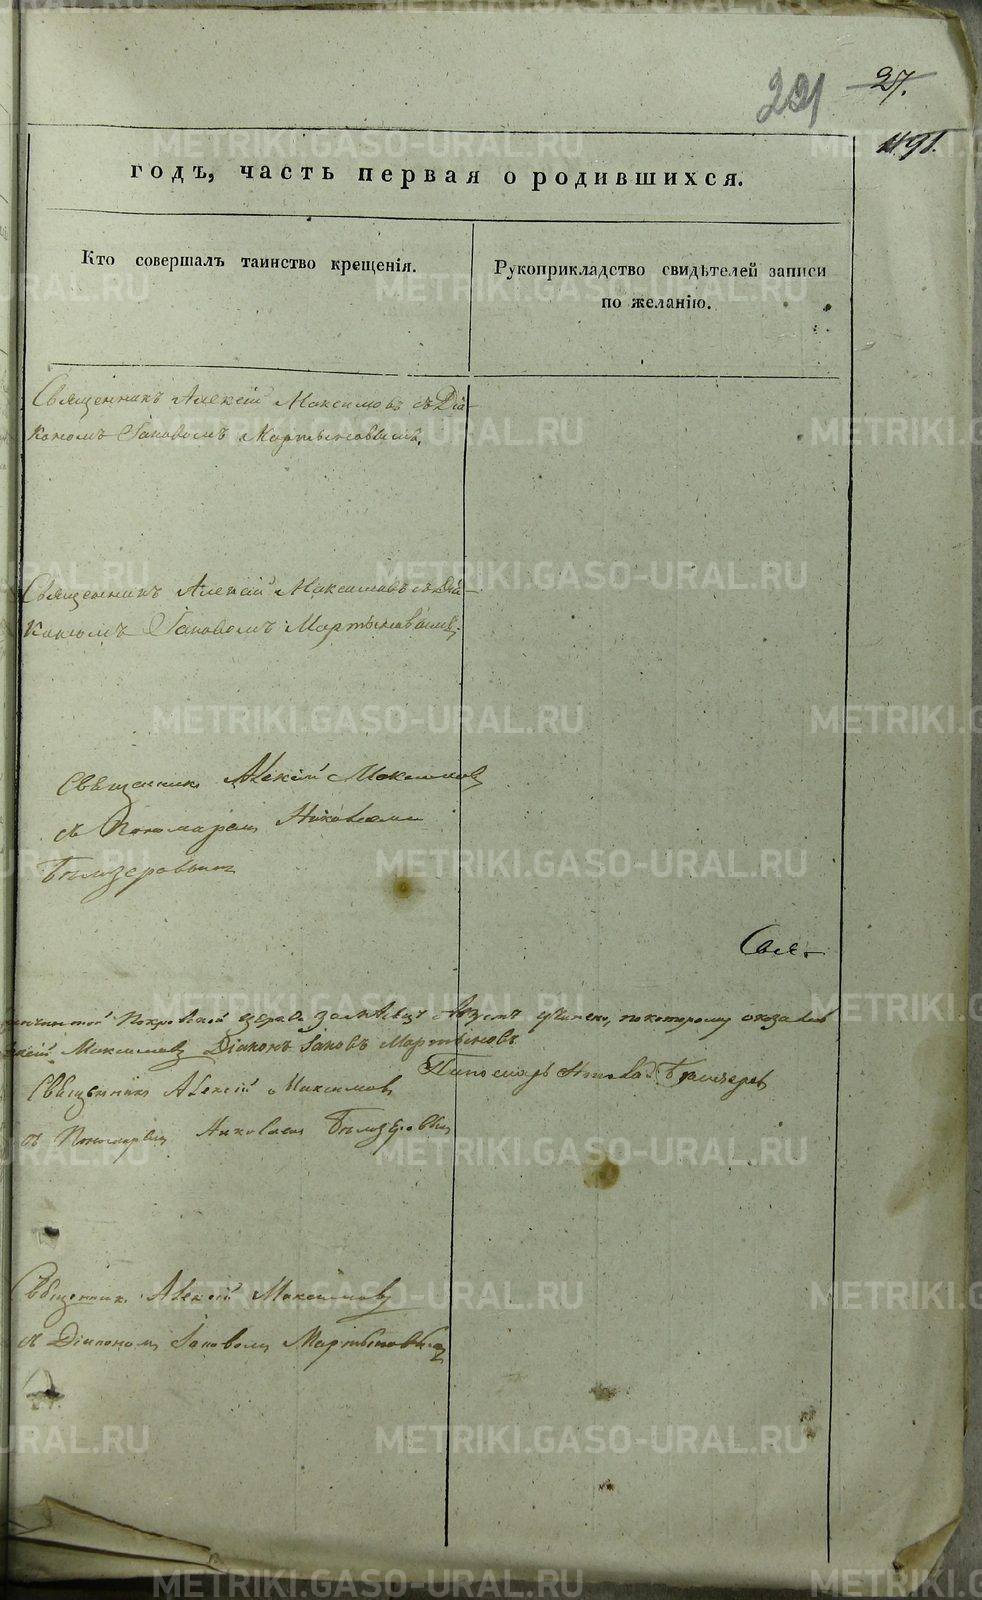 27.
221
годъ, часть первая о родившихся.
Кто совершалъ таинство крещенія.
Рукоприкладство свидѣтелей записи
по желанію.
Священникъ Алексій Максимовъ съ Діа-
кономъ Іаковомъ Мартыновымъ.
Священникъ Алексій Максимовъ съ Діа-
кономъ Іаковомъ Мартыновымъ.
Священникъ Алексій Максимовъ
съ Пономаремъ Николаемъ
Бѣлозеровымъ
Свя-
Покровской Августъ по которому
Максимовъ Діаконъ Іаковъ Мартыновъ
Пономарь Николай
Священникъ Алексій Максимовъ
съ Пономаремъ Николаемъ Бѣлозеровымъ
Священникъ Алексій Максимовъ
съ Діакономъ Іаковомъ Мартыновымъ
METRIKI.GASO-URAL.RU